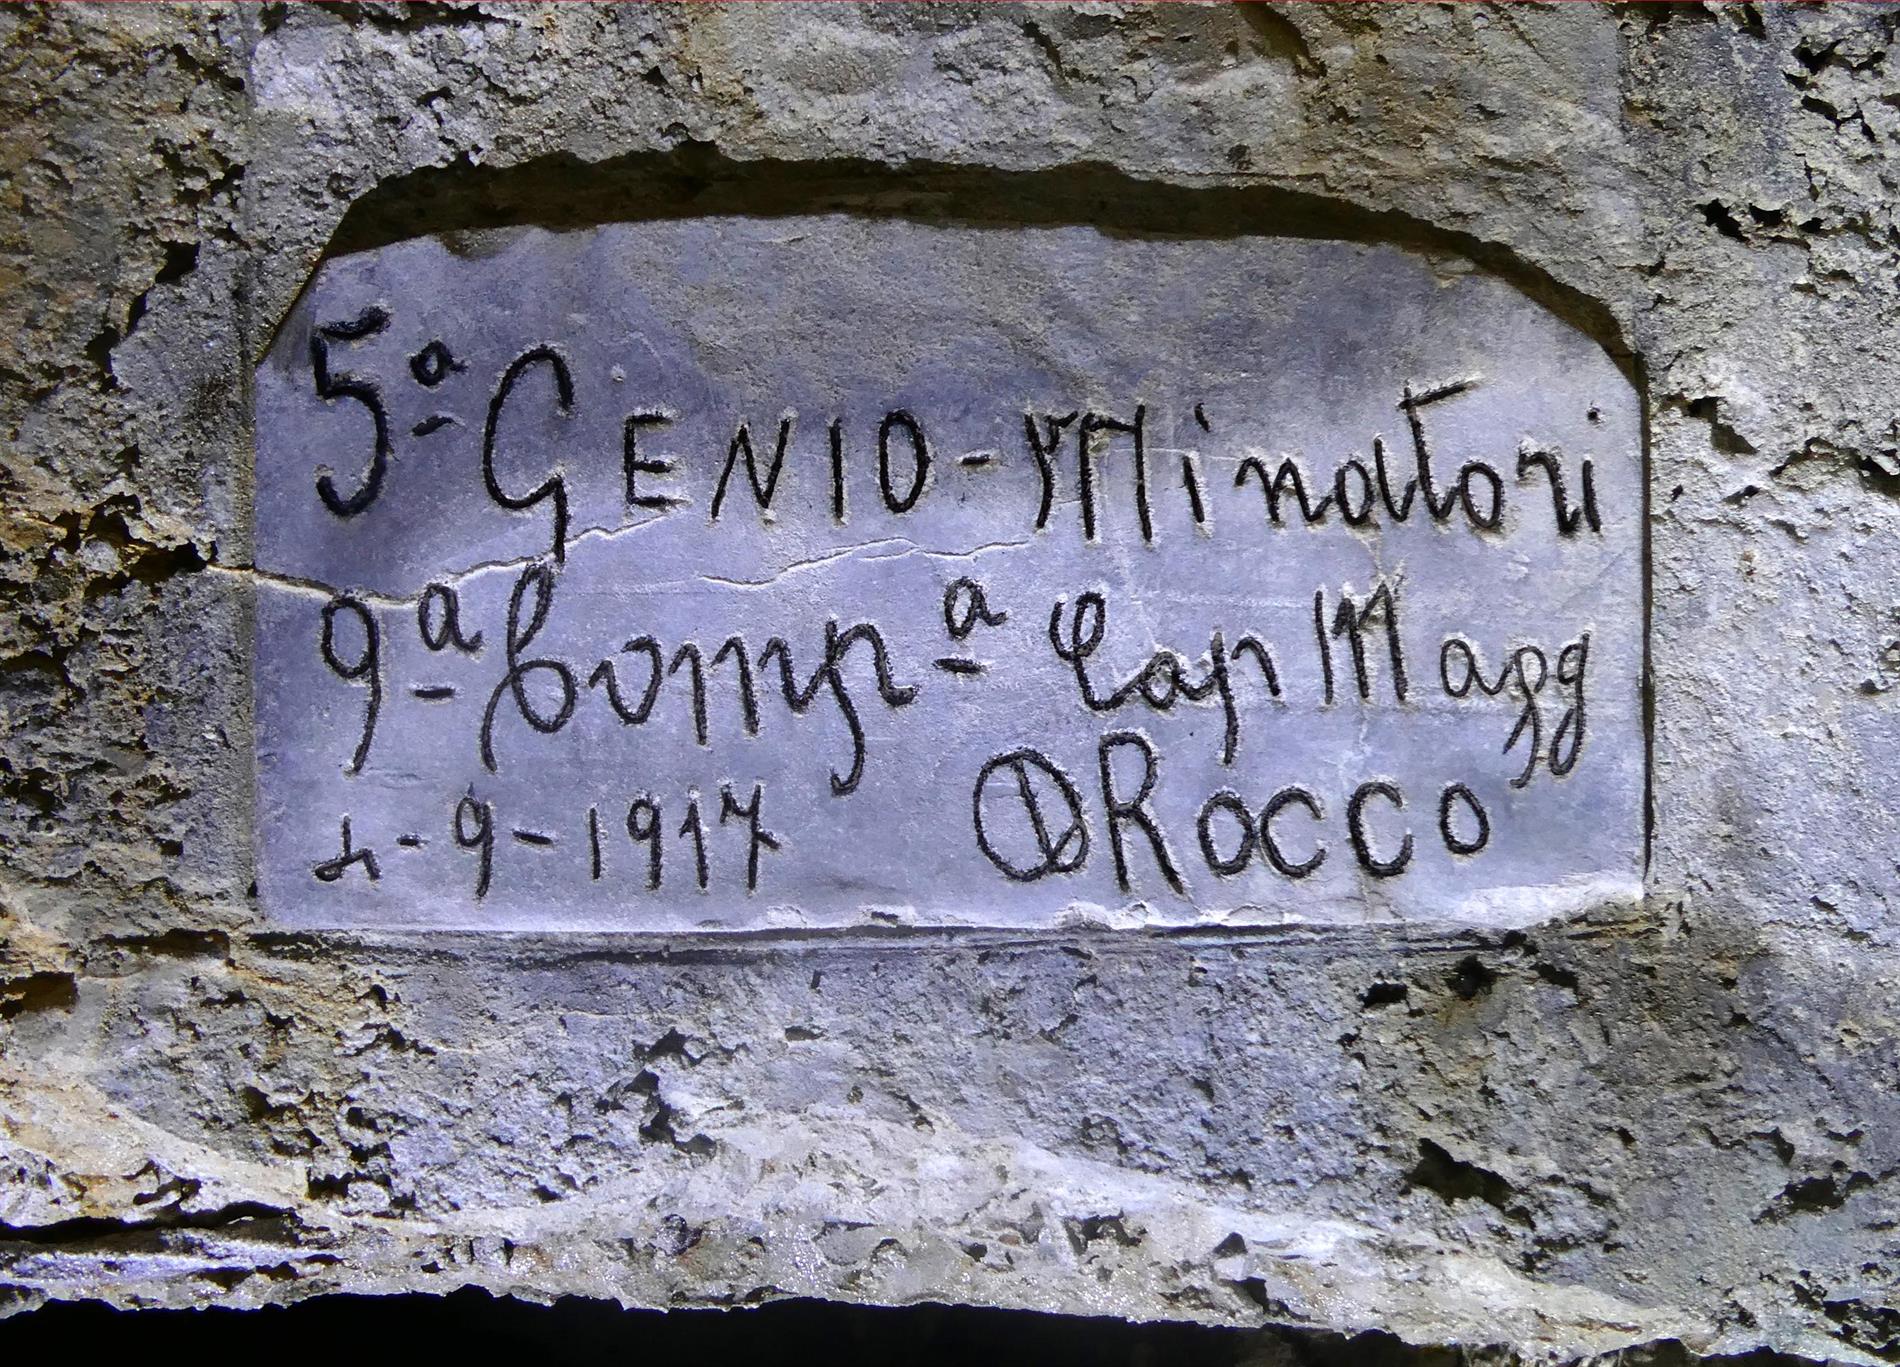 5ª GENIO-Minatori
9ª Compª Cap Magg
1-9-1917 D ROCCO